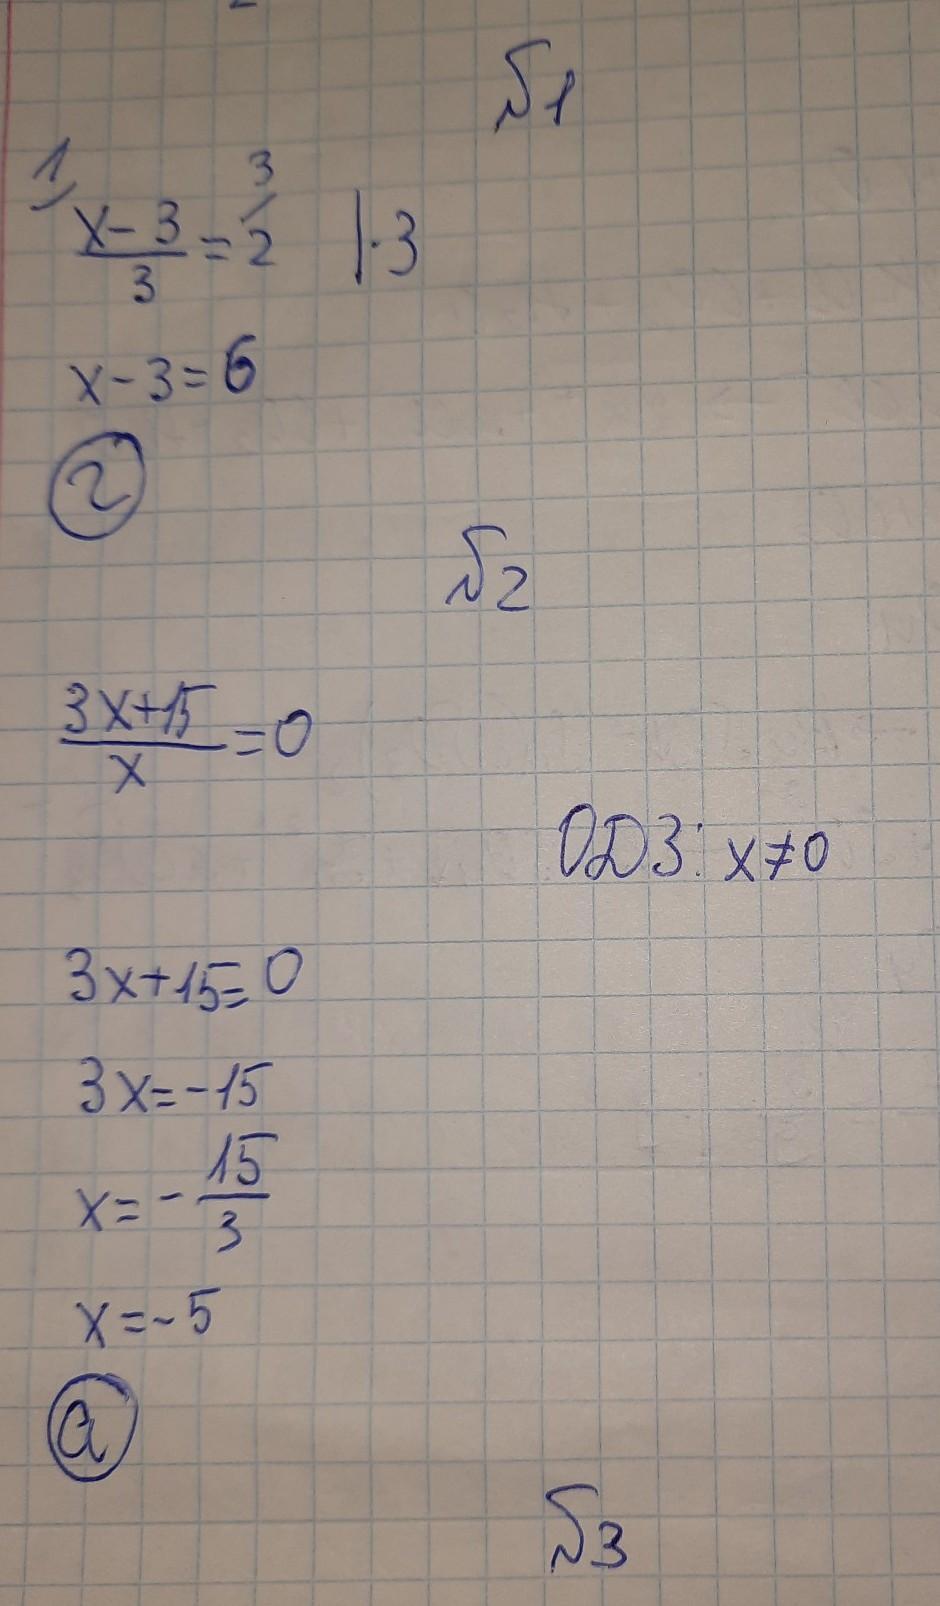 №1
1 3
x-3/3 = 2 |·3
x-3=6
г
№2
3x+15/x =0
ОДЗ: x≠0
3x+15=0
3x=-15
x=-15/3
x=-5
а
№3